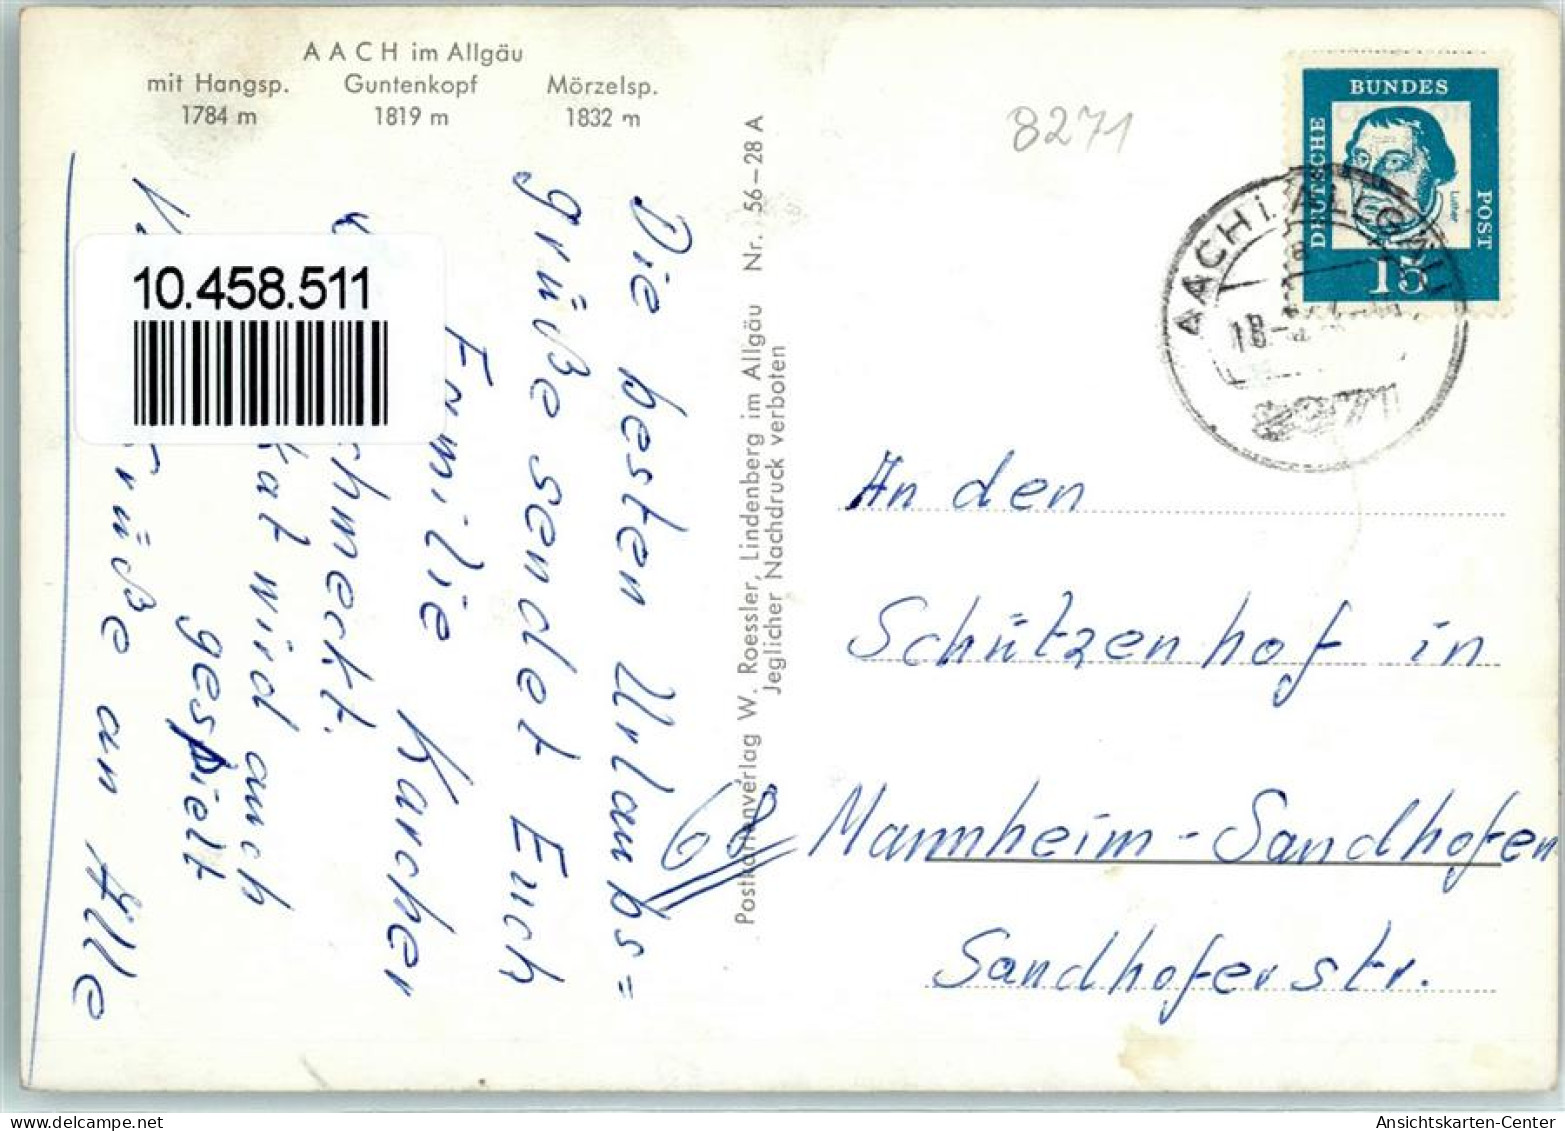 AACH im Allgäu
mit Hangsp. Guntenkopf Mörzelsp.
1784 m 1819 m 1832 m
8271
DEUTSCHE BUNDES POST
Luther
15
AACH I. ALLGÄU
10.458.511
Die besten Urlaubs=
grüße sendet Euch
Familie Karcher
chmeckt.
kat wird auch
gespielt
Grüße an Alle
Postkartenverlag W. Roessler, Lindenberg im Allgäu Nr. 56-28 A
Jeglicher Nachdruck verboten
An den
Schützenhof in
68 Mannheim-Sandhofen
Sandhoferstr.
Ansichtskarten-Center